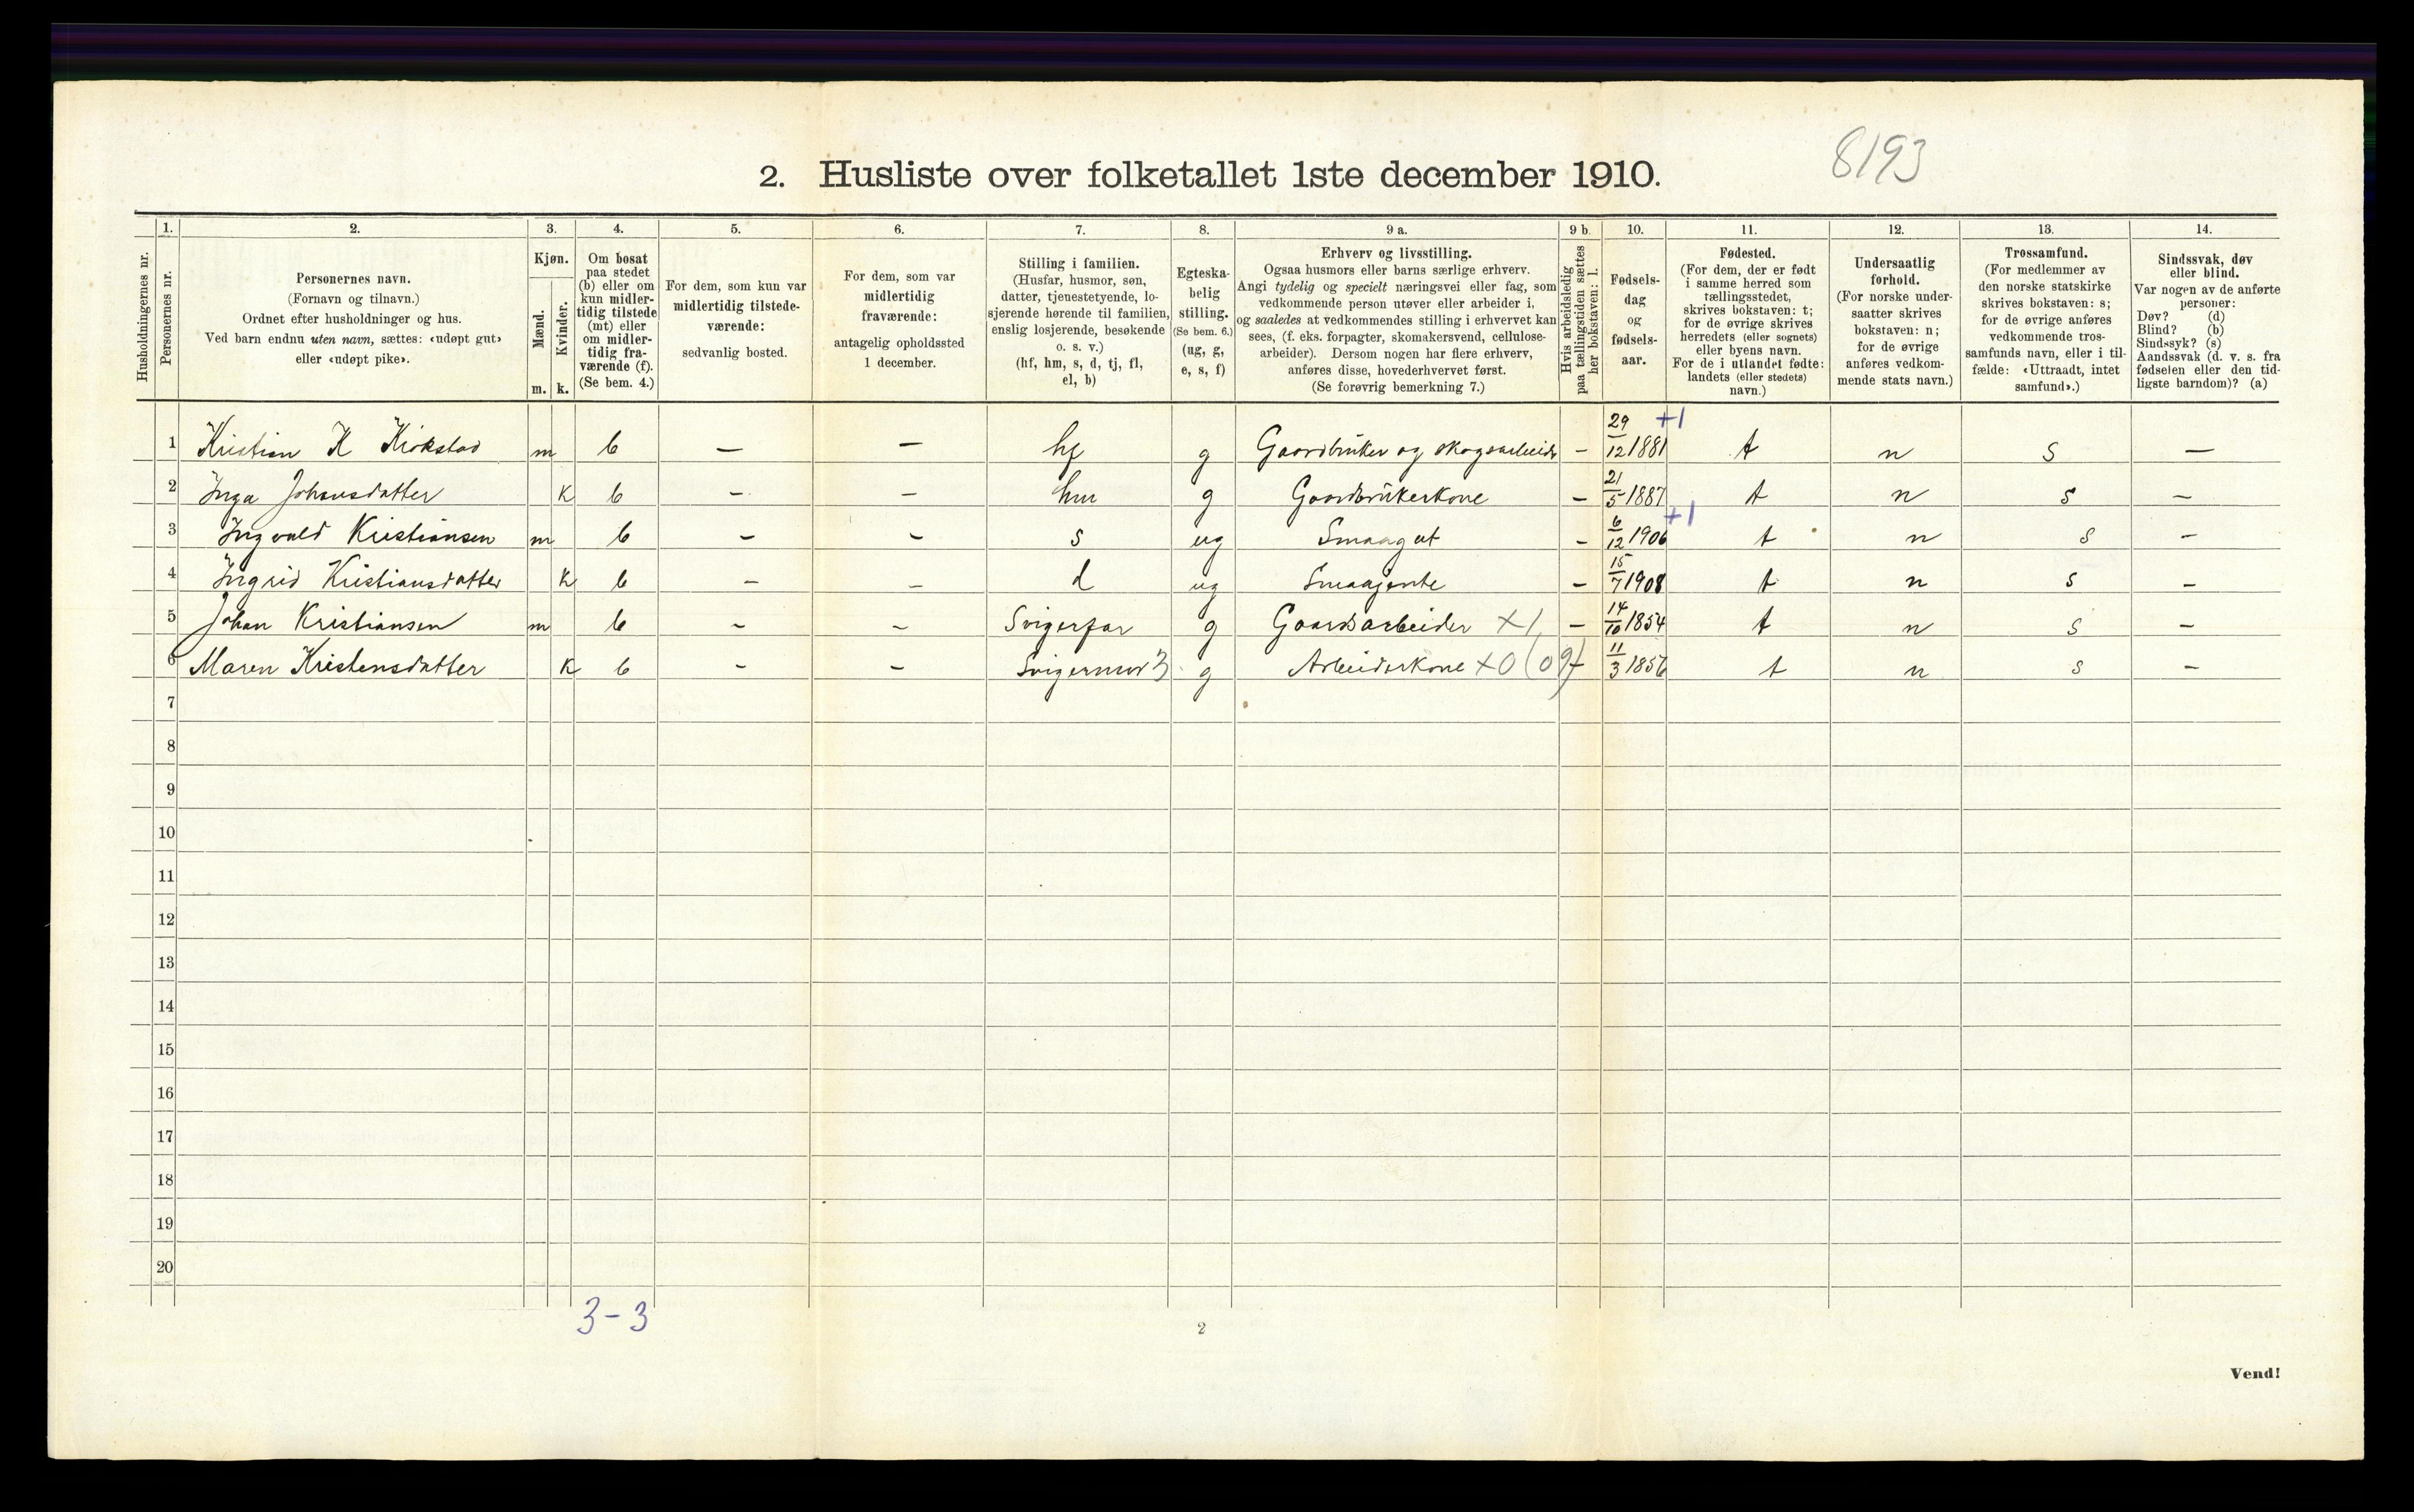 8193
2. Husliste over folketallet 1ste december 1910.
Husholdningernes nr.
1.
Personernes nr.
2.
Personernes navn.
(Fornavn og tilnavn.)
Ordnet efter husholdninger og hus.
Ved barn endnu uten navn, sættes: «udøpt gut»
eller «udøpt pike».
3.
Kjøn.
Mænd.
Kvinder.
m. k.
4.
Om bosat
paa stedet
(b) eller om
kun midler-
tidig tilstede
(mt) eller
om midler-
tidig fra-
værende (f).
(Se bem. 4.)
5.
For dem, som kun var
midlertidig tilstede-
værende:
sedvanlig bosted.
6.
For dem, som var
midlertidig
fraværende:
antagelig opholdssted
1 december.
7.
Stilling i familien.
(Husfar, husmor, søn,
datter, tjenestetyende, lo-
sjerende hørende til familien,
enslig losjerende, besøkende
o. s. v.)
(hf, hm, s, d, tj, fl,
el, b)
8.
Egteska-
belig
stilling.
(Se bem. 6.)
(ug, g,
e, s, f)
9 a.
Erhverv og livsstilling.
Ogsaa husmors eller barns særlige erhverv.
Angi tydelig og specielt næringsvei eller fag, som
vedkommende person utøver eller arbeider i,
og saaledes at vedkommendes stilling i erhvervet kan
sees, (f. eks. forpagter, skomakersvend, cellulose-
arbeider). Dersom nogen har flere erhverv,
anføres disse, hovederhvervet først.
(Se forøvrig bemerkning 7.)
9 b.
Hvis arbeidsledig
paa tællingstiden sættes
her bokstaven: l.
10.
Fødsels-
dag
og
fødsels-
aar.
11.
Fødested.
(For dem, der er født
i samme herred som
tællingsstedet,
skrives bokstaven: t;
for de øvrige skrives
herredets (eller sognets)
eller byens navn.
For de i utlandet fødte:
landets (eller stedets)
navn.)
12.
Undersaatlig
forhold.
(For norske under-
saatter skrives
bokstaven: n;
for de øvrige
anføres vedkom-
mende stats navn.)
13.
Trossamfund.
(For medlemmer av
den norske statskirke
skrives bokstaven: s;
for de øvrige anføres
vedkommende tros-
samfunds navn, eller i til-
fælde: «Uttraadt, intet
samfund».)
14.
Sindssvak, døv
eller blind.
Var nogen av de anførte
personer:
Døv? (d)
Blind? (b)
Sindssyk? (s)
Aandssvak (d. v. s. fra
fødselen eller den tid-
ligste barndom)? (a)
1 Kristian K Kirkstad m b – – hf g Gaardbruker og skogsarbeider – 29/12 1881 +1 t n s –
2 Inga Johansdatter k b – – hm g Gaardbrukerkone – 21/5 1887 t n s –
3 Ingvald Kristiansen m b – – s ug Smaagut – 6/12 1906 +1 t n s –
4 Ingrid Kristiansdatter k b – – d ug Smaajente – 15/7 1908 t n s –
5 Johan Kristiansen m b – – Svigerfar g Gaardsarbeider x1 – 14/10 1854 t n s –
6 Maren Kristensdatter k b – – Svigermor 3 g Arbeiderkone x0 (09) – 11/3 1856 t n s –
7
8
9
10
11
12
13
14
15
16
17
18
19
20
3-3
2
Vend!